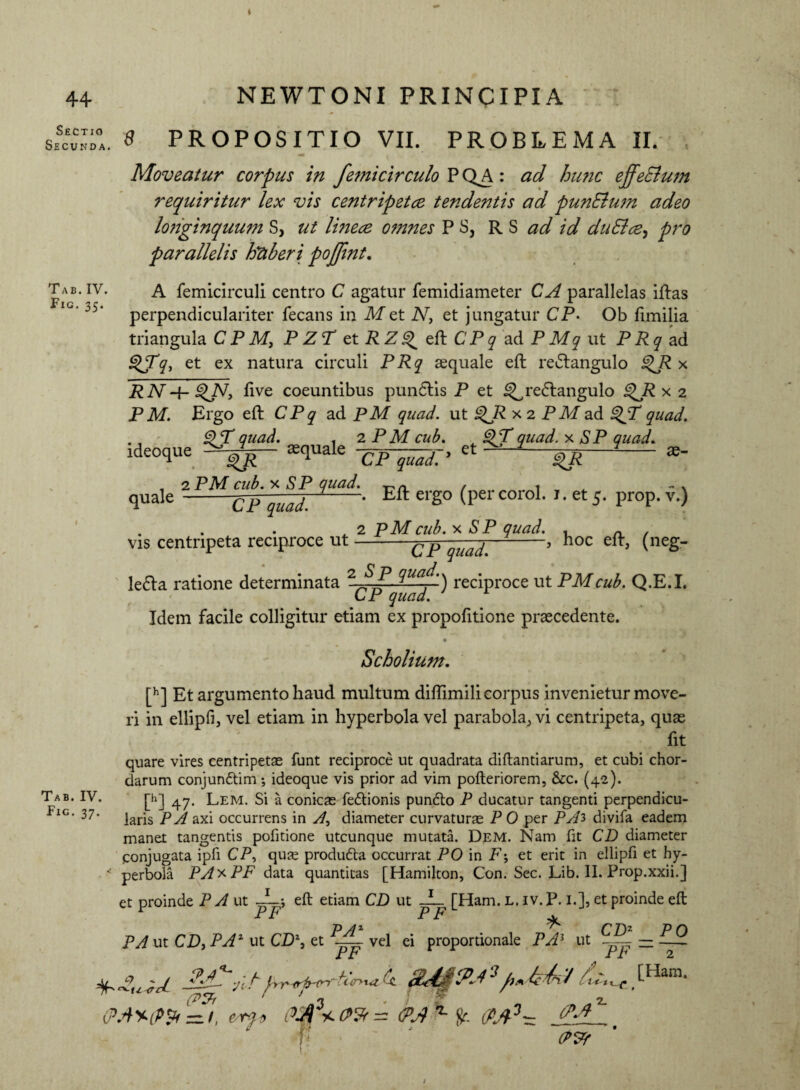 44 NEWTONI PRINCIPIA
Sectio Secunda.
PROPOSITIO VII. PROBLEMA II.
Moveatur corpus in ſemicirculo PQA: ad hunc effectum
requiritur lex vis centripetæ tendentis ad punctum adeo
longinquum S, ut lineæ omnes P S, R S ad id ductæ, pro
parallelis haberi poſſint.
Tab. IV. Fig. 35.
A ſemicirculi centro C agatur ſemidiameter CA parallelas iſtas
perpendiculariter ſecans in M et N, et jungatur CP. Ob ſimilia
triangula C P M, P Z T et R Z Q eſt C P q ad P M q ut P R q ad
QT q, et ex natura circuli P R q æquale eſt rectangulo QR ×
RN + QN, ſive coeuntibus punctis P et Q rectangulo QR × 2
P M. Ergo eſt CP q ad PM quad. ut QR × 2 PM ad QT quad.
ideoque QT quad. / QR æquale 2 P M cub. / CP quad., et QT quad. × SP quad. / QR æ-
quale 2 PM cub. × SP quad. / CP quad. Eſt ergo (per corol. 1. et 5. prop. v.)
vis centripeta reciproce ut 2 PM cub. × SP quad. / CP quad., hoc eſt, (neg-
lecta ratione determinata 2 SP quad. / CP quad.) reciproce ut PM cub. Q.E.I.
Idem facile colligitur etiam ex propoſitione præcedente.
Scholium.
[h] Et argumento haud multum diſſimili corpus invenietur move-
ri in ellipſi, vel etiam in hyperbola vel parabola, vi centripeta, quæ
ſit
quare vires centripetæ ſunt reciprocè ut quadrata diſtantiarum, et cubi chor-
darum conjunctim; ideoque vis prior ad vim poſteriorem, &c. (42).
Tab. IV. Fig. 37.
[h] 47. Lem. Si à conicæ ſectionis puncto P ducatur tangenti perpendicu-
laris PA axi occurrens in A, diameter curvaturæ P O per PA³ diviſa eadem
manet tangentis poſitione utcunque mutatâ. Dem. Nam ſit CD diameter
conjugata ipſi CP, quæ producta occurrat PO in F; et erit in ellipſi et hy-
perbolâ PA×PF data quantitas [Hamilton, Con. Sec. Lib. II. Prop. xxii.]
et proinde P A ut 1/PF; eſt etiam CD ut 1/PF [Ham. L. IV. P. 1.], et proinde eſt
PA ut CD, PA² ut CD², et PA²/PF vel ei proportionale PA³ ut CD²/PF = PO/2
[Ham.
PA×PF = 1, ergo PA³×PF = PA² & PA³ = PA²/PF.